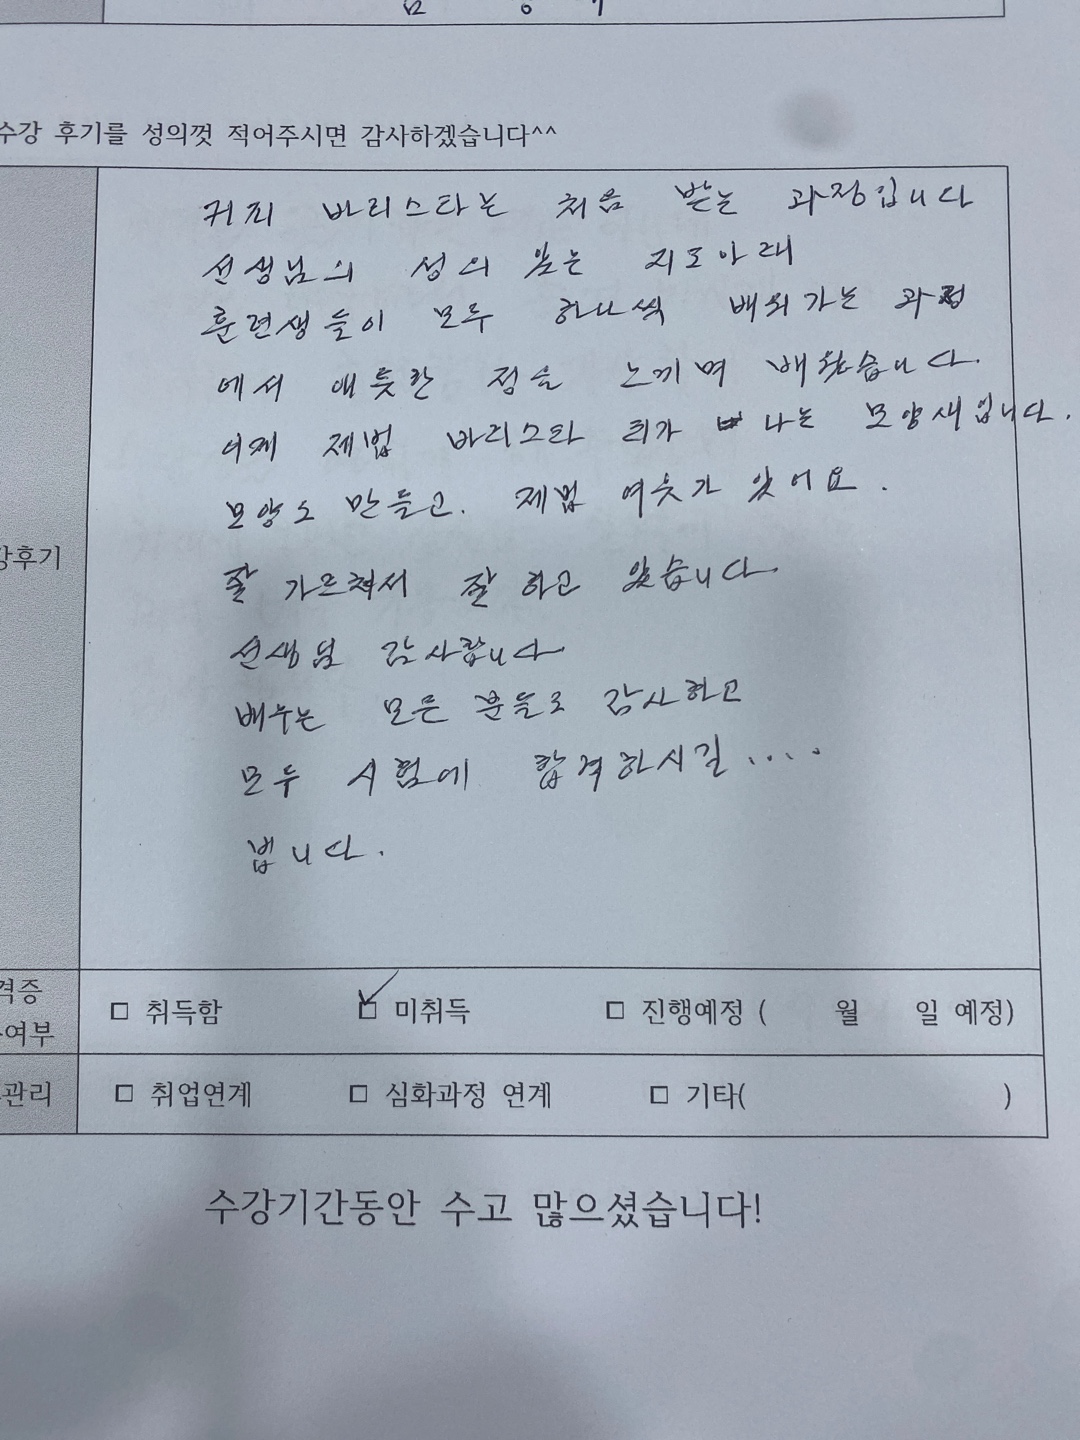 수강 후기를 성의껏 적어주시면 감사하겠습니다^^
커피 바리스타는 처음 받는 과정입니다
선생님의 성의 있는 지도아래
훈련생들이 모두 하나씩 배워가는 과정
에서 애틋한 점을 느끼며 배웠습니다.
이제 제법 바리스타 티가 나는 모양새입니다.
모양도 만들고. 제법 여유가 있어요.
잘 가르쳐서 잘 하고 있습니다
선생님 감사합니다
배우는 모든 분들도 감사하고
모두 시험에 합격하시길....
빕니다.
강후기
격증
여부
□ 취득함 □ 미취득 □ 진행예정 ( 월 일 예정)
관리
□ 취업연계 □ 심화과정 연계 □ 기타( )
수강기간동안 수고 많으셨습니다!